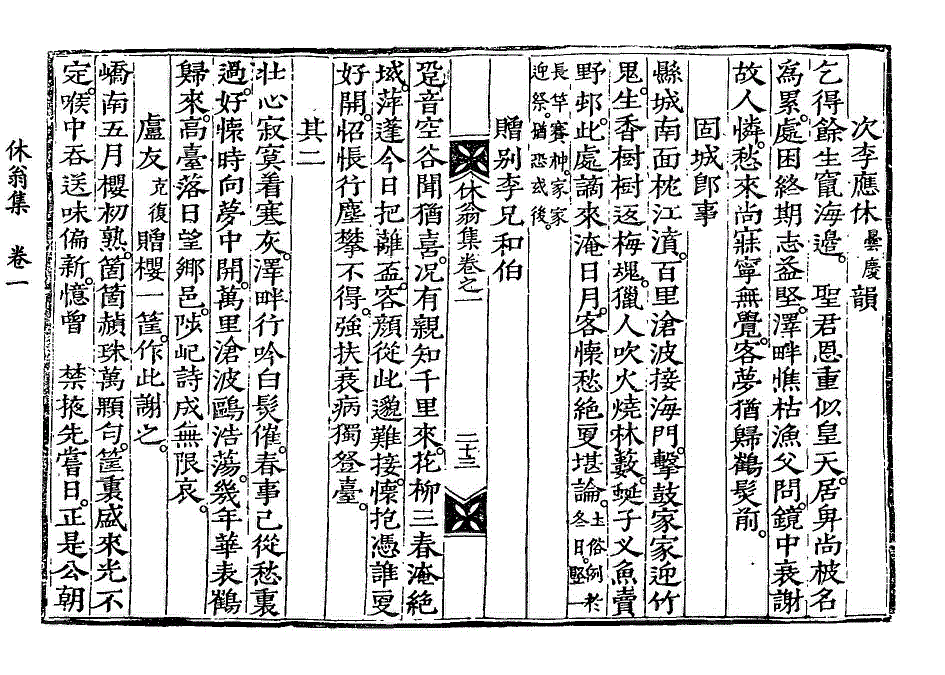 次李應休曇慶韻
乞得餘生竄海邊。 聖君恩重似皇天。居夷尙被名
爲累。處困終期志益堅。澤畔憔枯漁父問。鏡中衰謝
故人憐。愁來尙寐寧無覺。客夢猶歸鶴髮前。
固城卽事
縣城南面枕江濆。百里滄波接海門。擊鼓家家迎竹
鬼。生香樹樹返梅魂。獵人吹火燒林藪。蜒子叉魚賣
野邨。此處謫來淹日月。客懷愁絶更堪論。土俗例於冬日。竪一
長竿賽神。家家迎祭。猶恐或後。
贈別李兄和伯
休翁集卷之一
二十三
跫音空谷聞猶喜。况有親知千里來。花柳三春淹絶
域。萍蓬今日把離盃。容顔從此邈難接。懷抱憑誰更
好開。怊悵行塵攀不得。強扶衰病獨登臺。
其二
壯心寂寞着寒灰。澤畔行吟白髮催。春事已從愁裏
過。好懷時向夢中開。萬里滄波鷗浩蕩。幾年華表鶴
歸來。高臺落日望鄕邑。陟屺詩成無限哀。
盧友克復贈櫻一筐。作此謝之。
嶠南五月櫻初熟。箇箇赬珠萬顆勻。筐裏盛來光不
定。喉中吞送味偏新。憶曾 禁掖先嘗日。正是公朝
休翁集 卷一